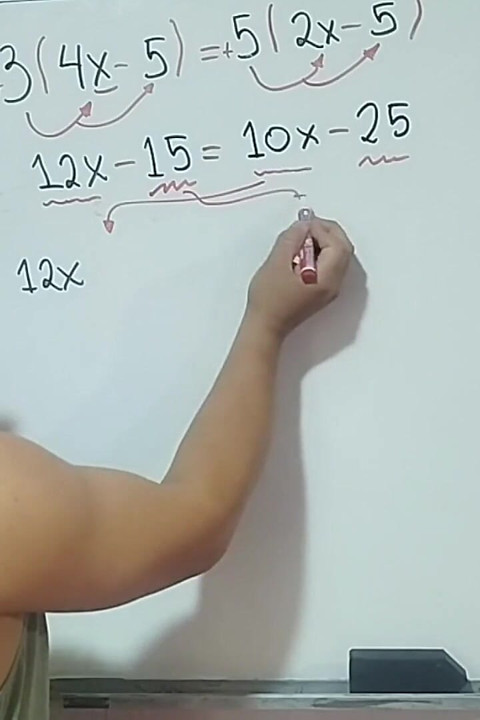 3(4x-5)=+5(2x-5)
12x-15=10x-25
12x